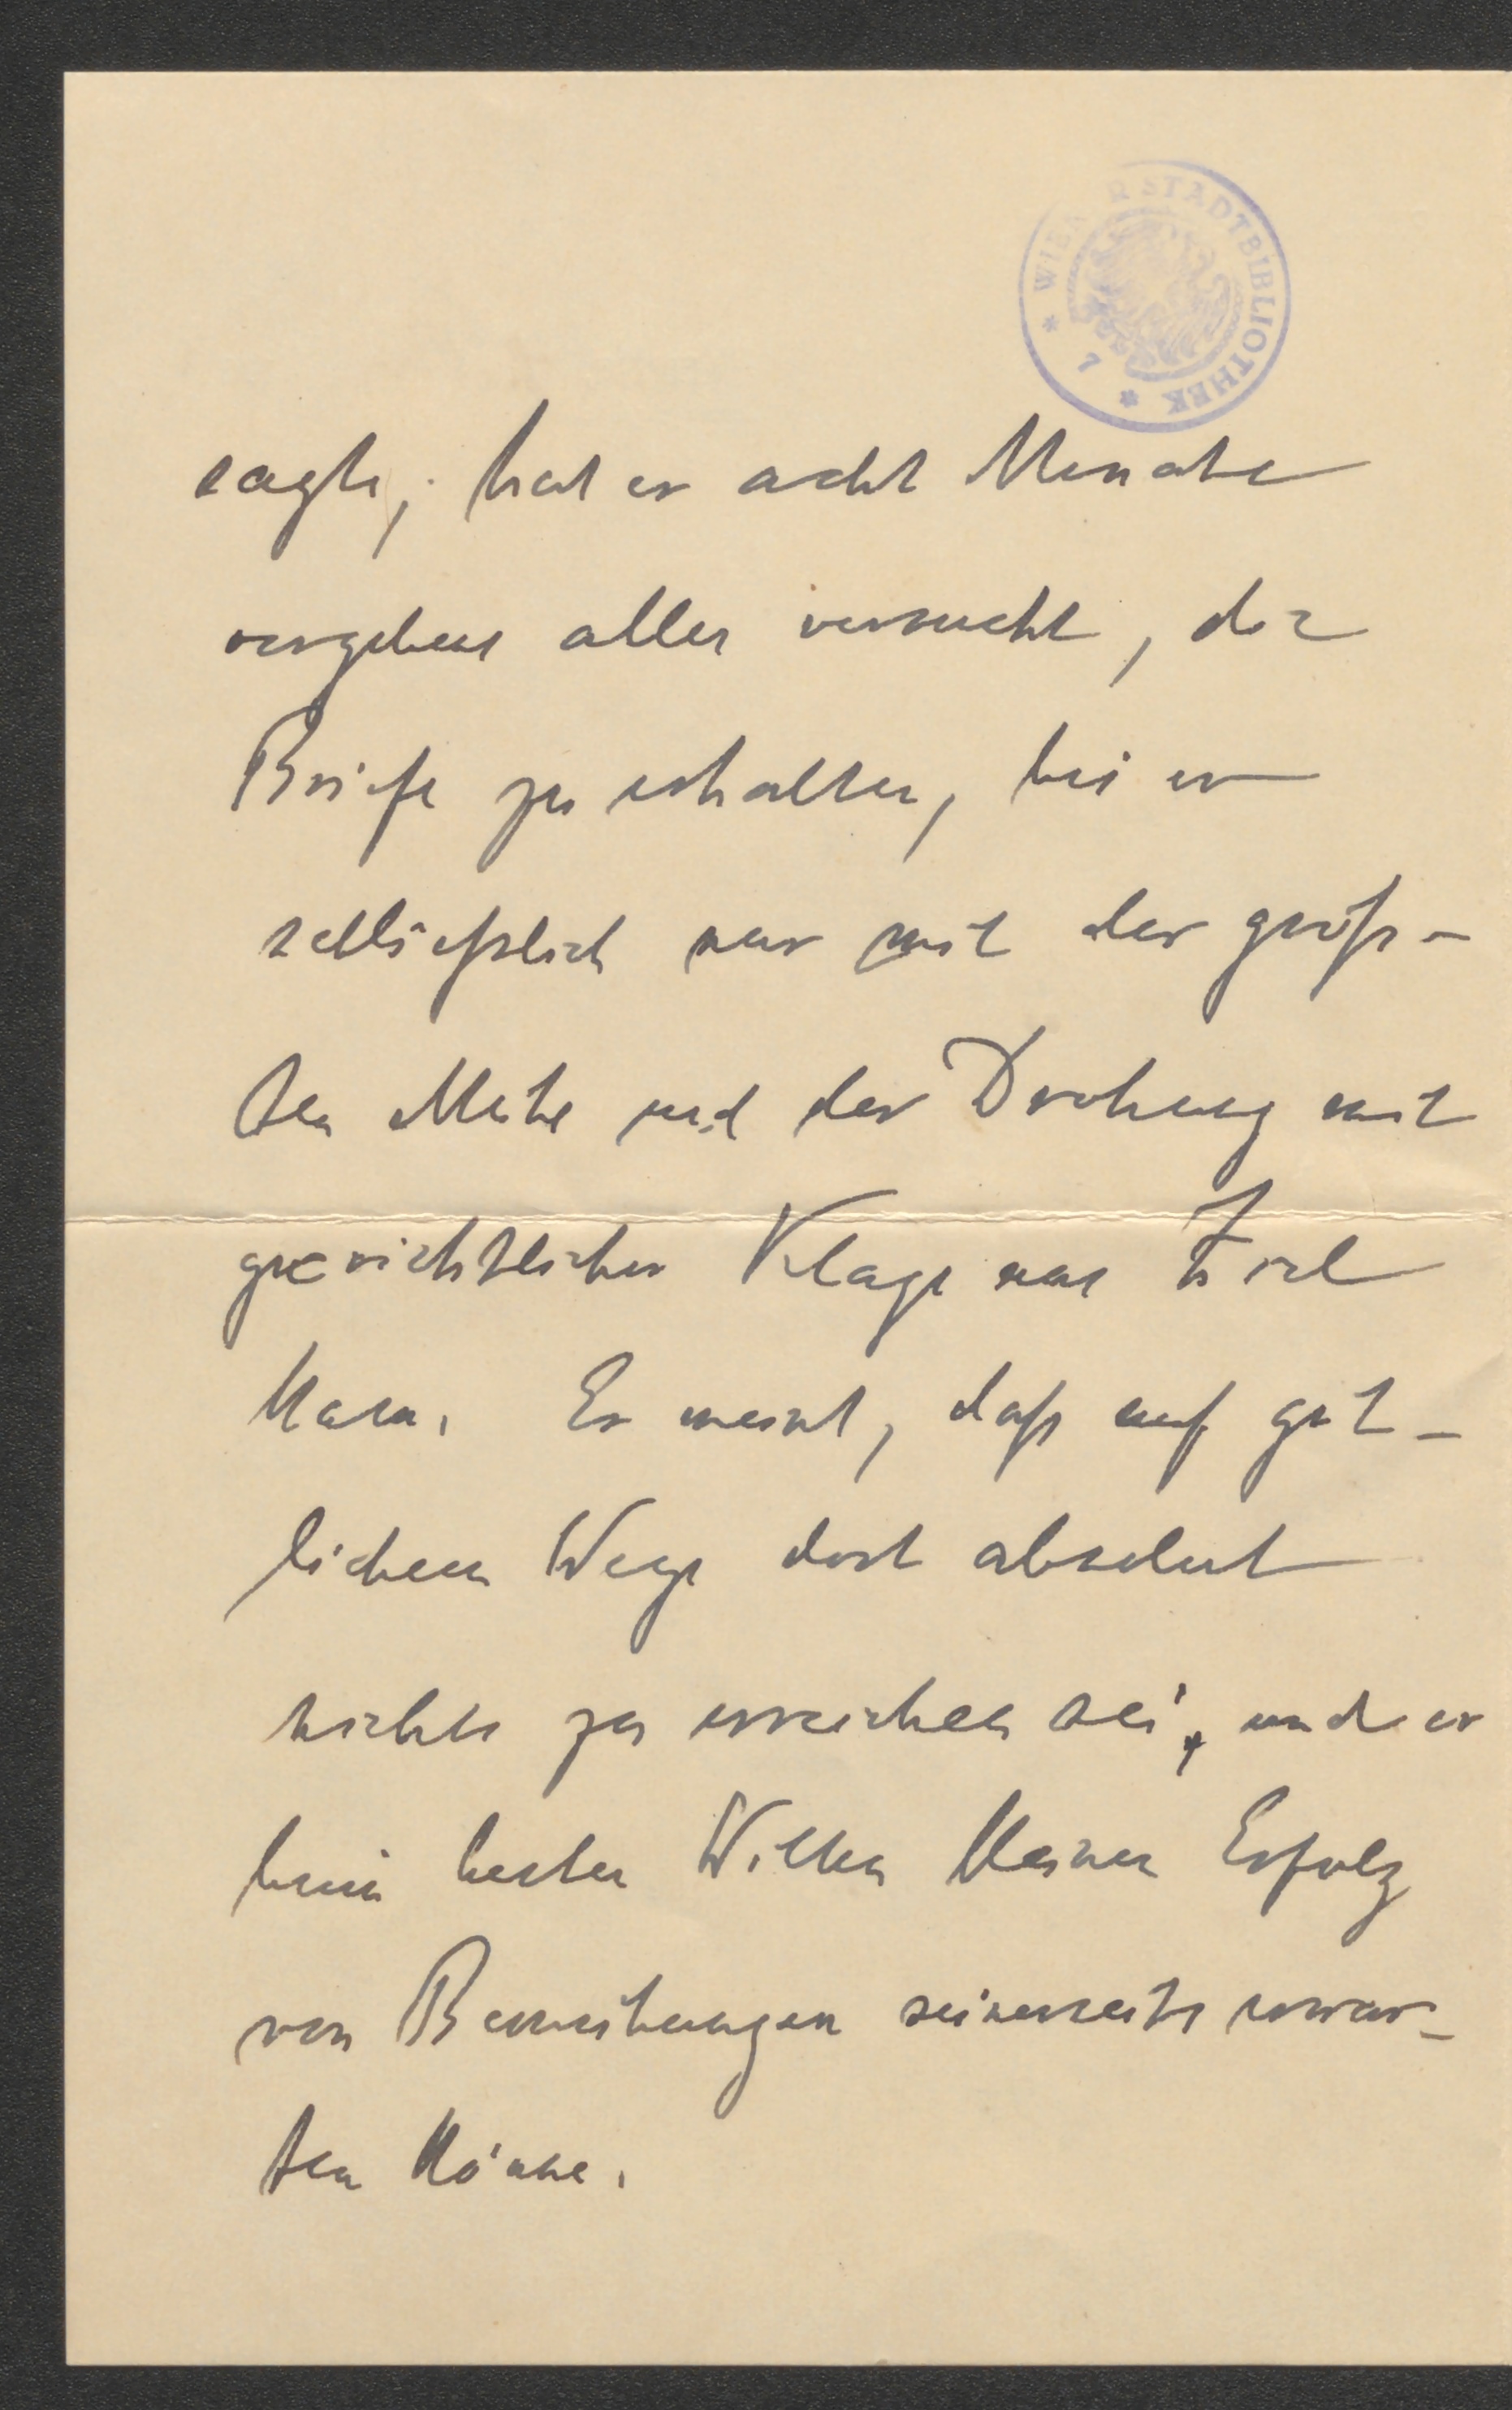 WIENER STADTBIBLIOTHEK
sagte, hat er acht Monate
vergebens alles versucht, die
Briefe zu erhalten, bis er
schließlich nur mit der größ-
ten Mühe und der Drohung mit
gerichtlicher Klage ans Ziel
kam. Er meint, daß auf güt-
lichem Wege dort absolut
nichts zu erreichen sei, und er
beim besten Willen keinen Erfolg
von Bemühungen seinerseits erwar-
ten könne.